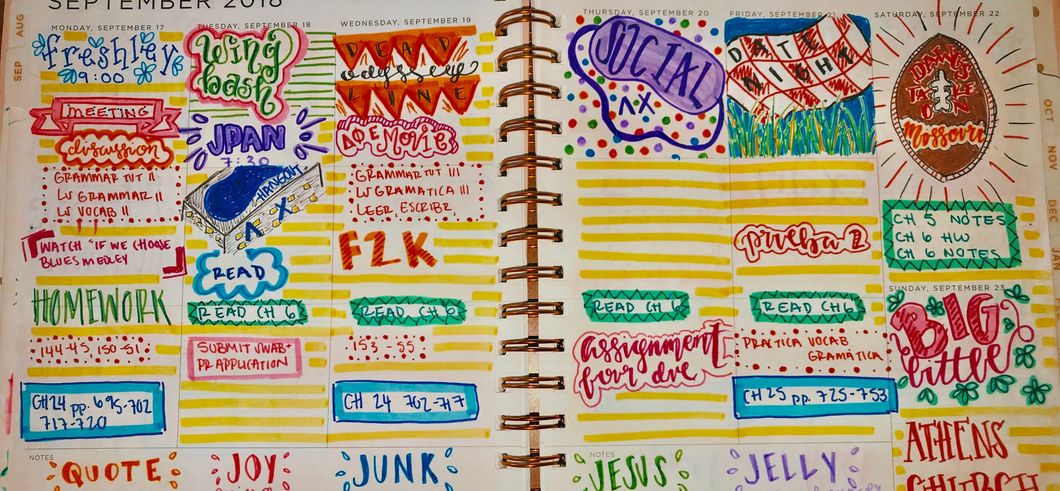 SEPTEMBER 2018
MONDAY, SEPTEMBER 17
freshley
9:00
MEETING
discussion
GRAMMAR TUT II
LS GRAMMAR II
LS VOCAB II
WATCH "IF WE CHOOSE
BLUES MEDLEY
HOMEWORK
144-45, 150-51
CH 24 pp. 695-702
717-720
TUESDAY, SEPTEMBER 18
wing
bash
JPAN
7:30
HANGOUT
ΛX
READ
READ CH 6
SUBMIT SWAB +
PR APPLICATION
WEDNESDAY, SEPTEMBER 19
DEAD
odyssey
LINE
MOVIE
GRAMMAR TUT III
LS GRAMATICA III
LEER, ESCRIBR,
F2K
READ CH 6
153-55
CH 24 702-717
THURSDAY, SEPTEMBER 20
SOCIAL
ΛX
READ CH 6
assignment
four due
FRIDAY, SEPTEMBER 21
DATE
NIGHT
prueba 2
READ CH 6
PRACTICA VOCAB
GRAMÁTICA
CH 25 pp. 725-753
SATURDAY, SEPTEMBER 22
DAWGS
TAKE
ON
Missouri
CH 5 NOTES
CH 6 HW
CH 6 NOTES
SUNDAY, SEPTEMBER 23
BIG
little
ATHENS
CHURCH
NOTES
QUOTE
JOY
JUNK
NOTES
JESUS
JELLY
AUG
SEP
OCT
NOV
DEC
JAN